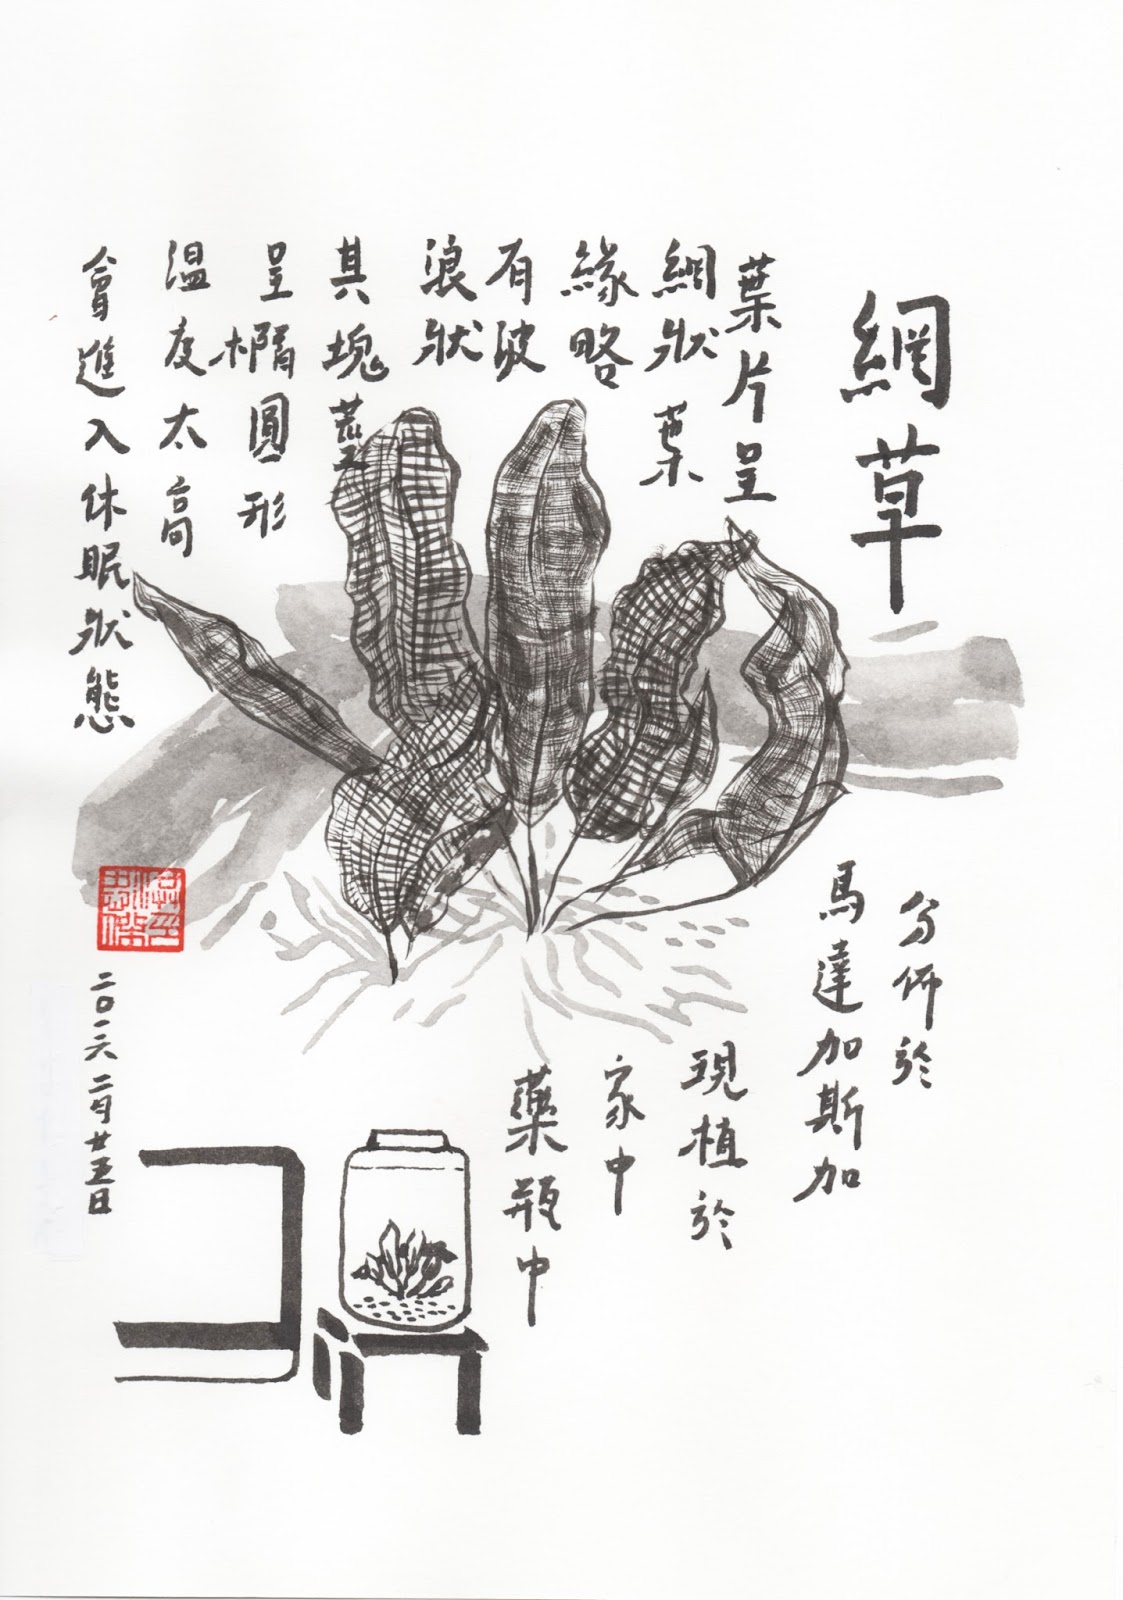 網草
葉片呈
網狀葉
緣略
有波
浪狀
其塊莖
呈橢圓形
溫度太高
會進入休眠狀態
分佈於
馬達加斯加
現植於
家中
藥瓶中
二〇一六 二月廿五日